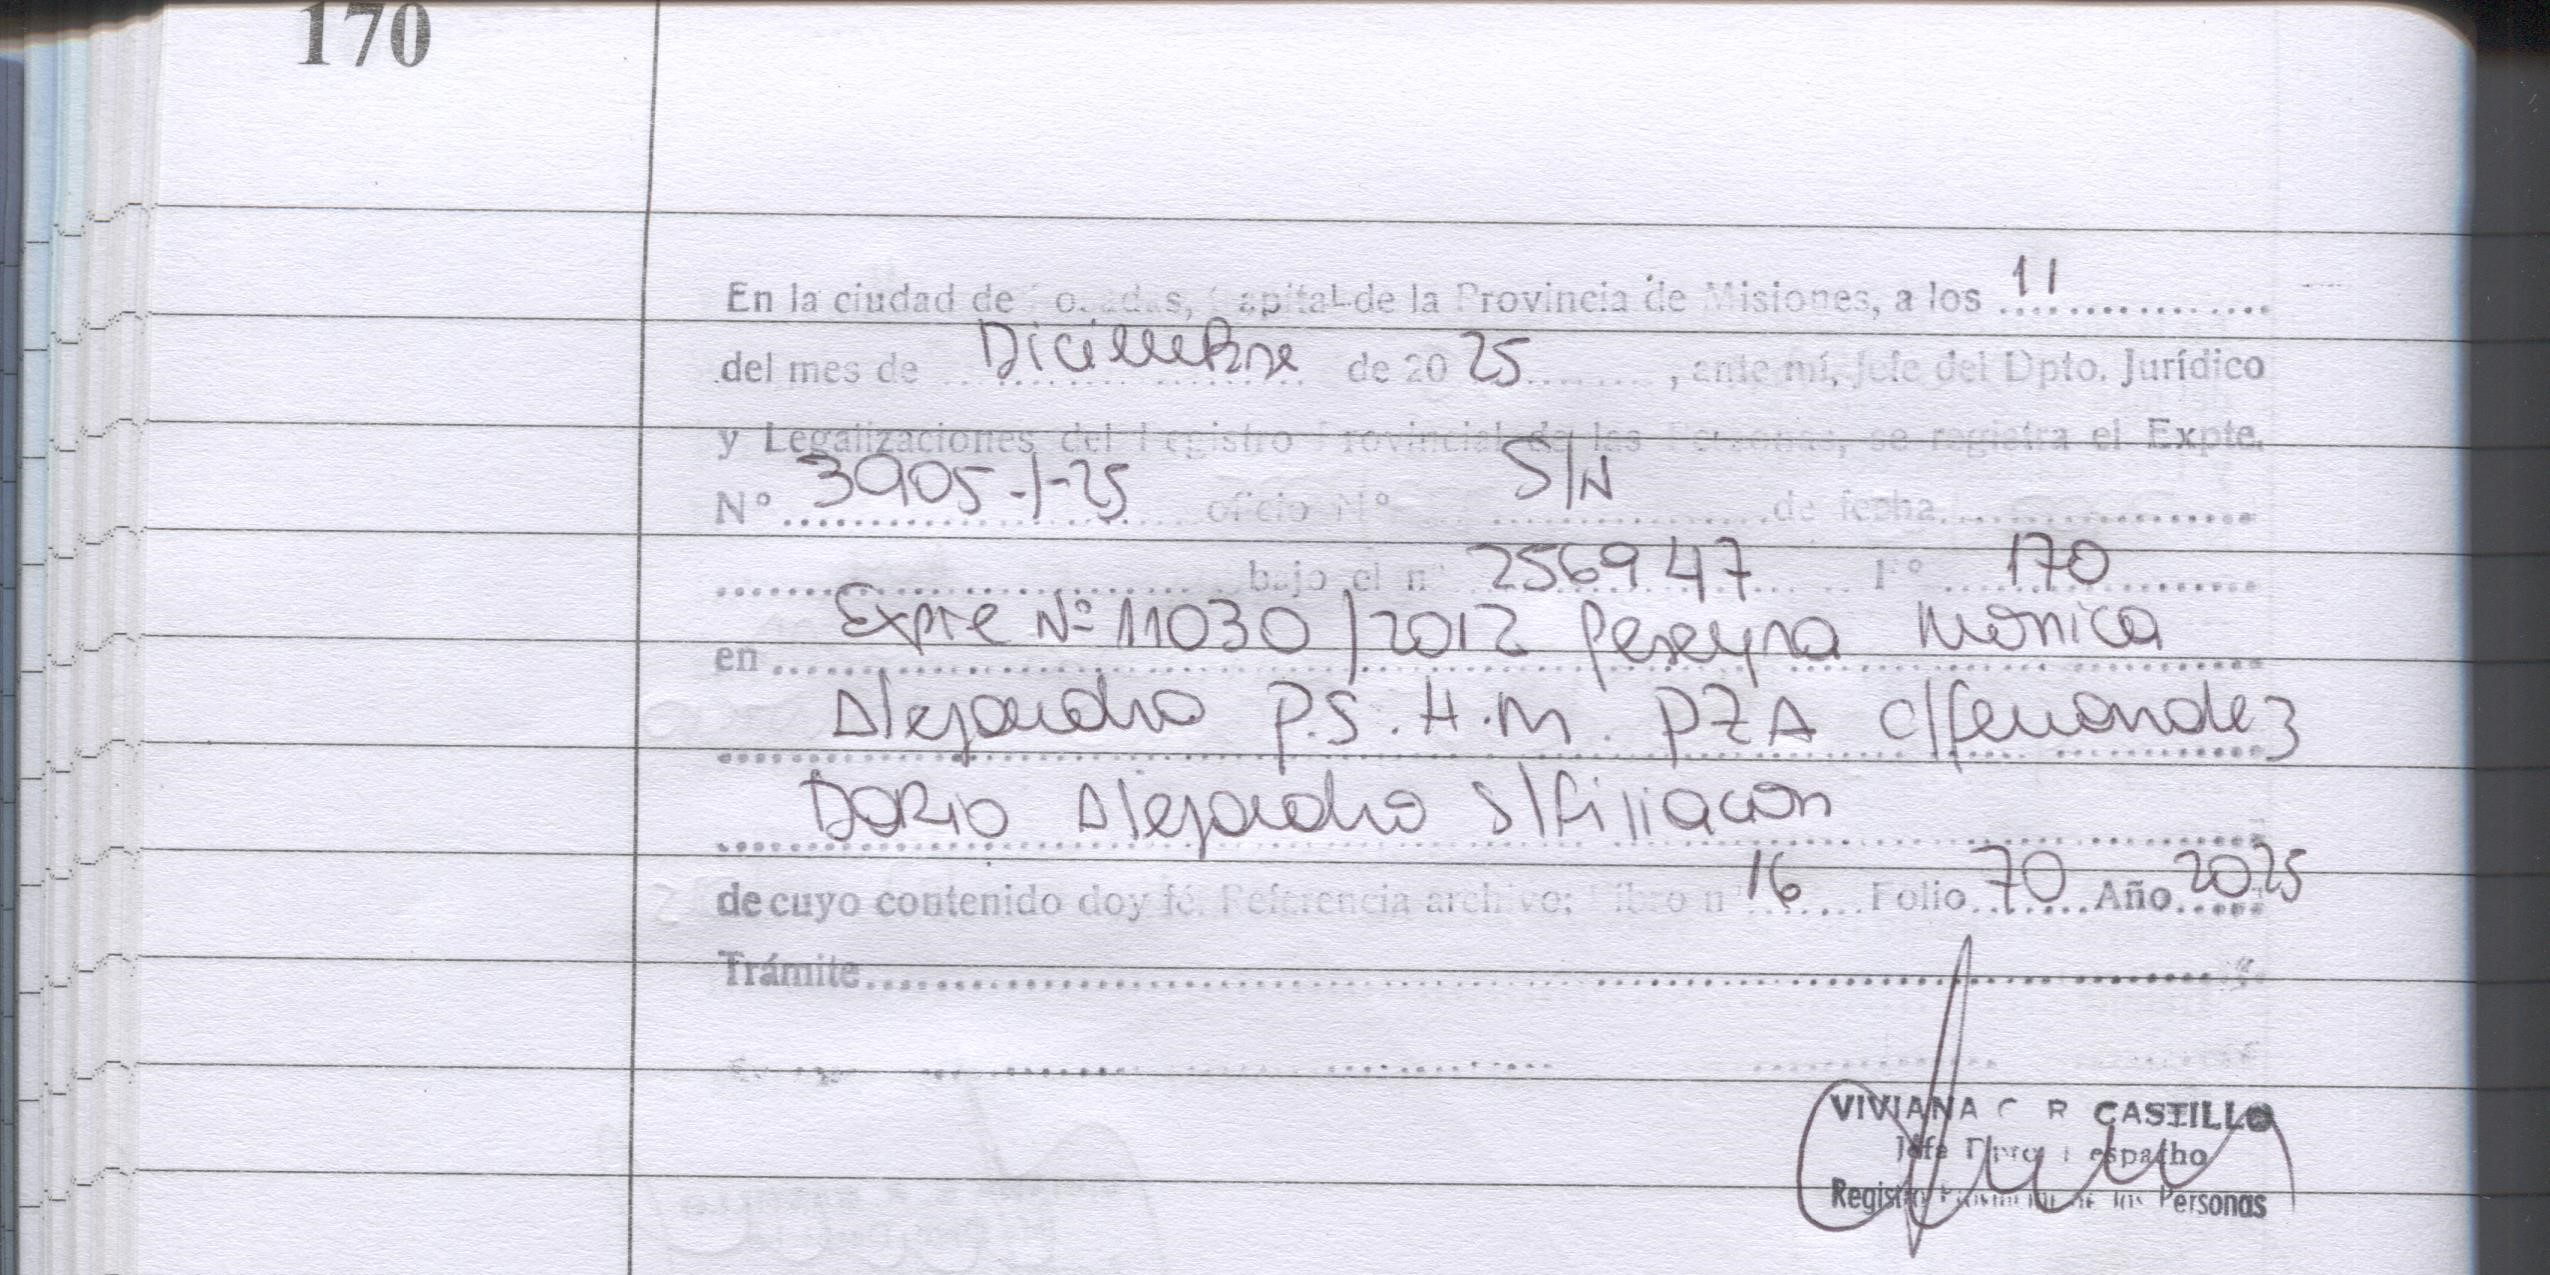 170
En la ciudad de Posadas, Capital de la Provincia de Misiones, a los 11
del mes de Diciembre de 2025, ante mí, Jefe del Dpto. Jurídico
y Legalizaciones del Registro Provincial de las Personas, se registra el Expte.
Nº 3905-1-25 oficio Nº S/N de fecha
bajo el nº 256947 Fº 170
en Expte Nº 11030/2012 Pereyra Monica
Alejandra P.S.H.M. PZA c/Fernandez
DARIO Alejandro S/filiacion
de cuyo contenido doy fé. Referencia archivo: Libro nº 16 Folio 70 Año 2025
Trámite
VIVIANA C R CASTILLO
Jefa Dpto Despacho
Registro Provincial de las Personas